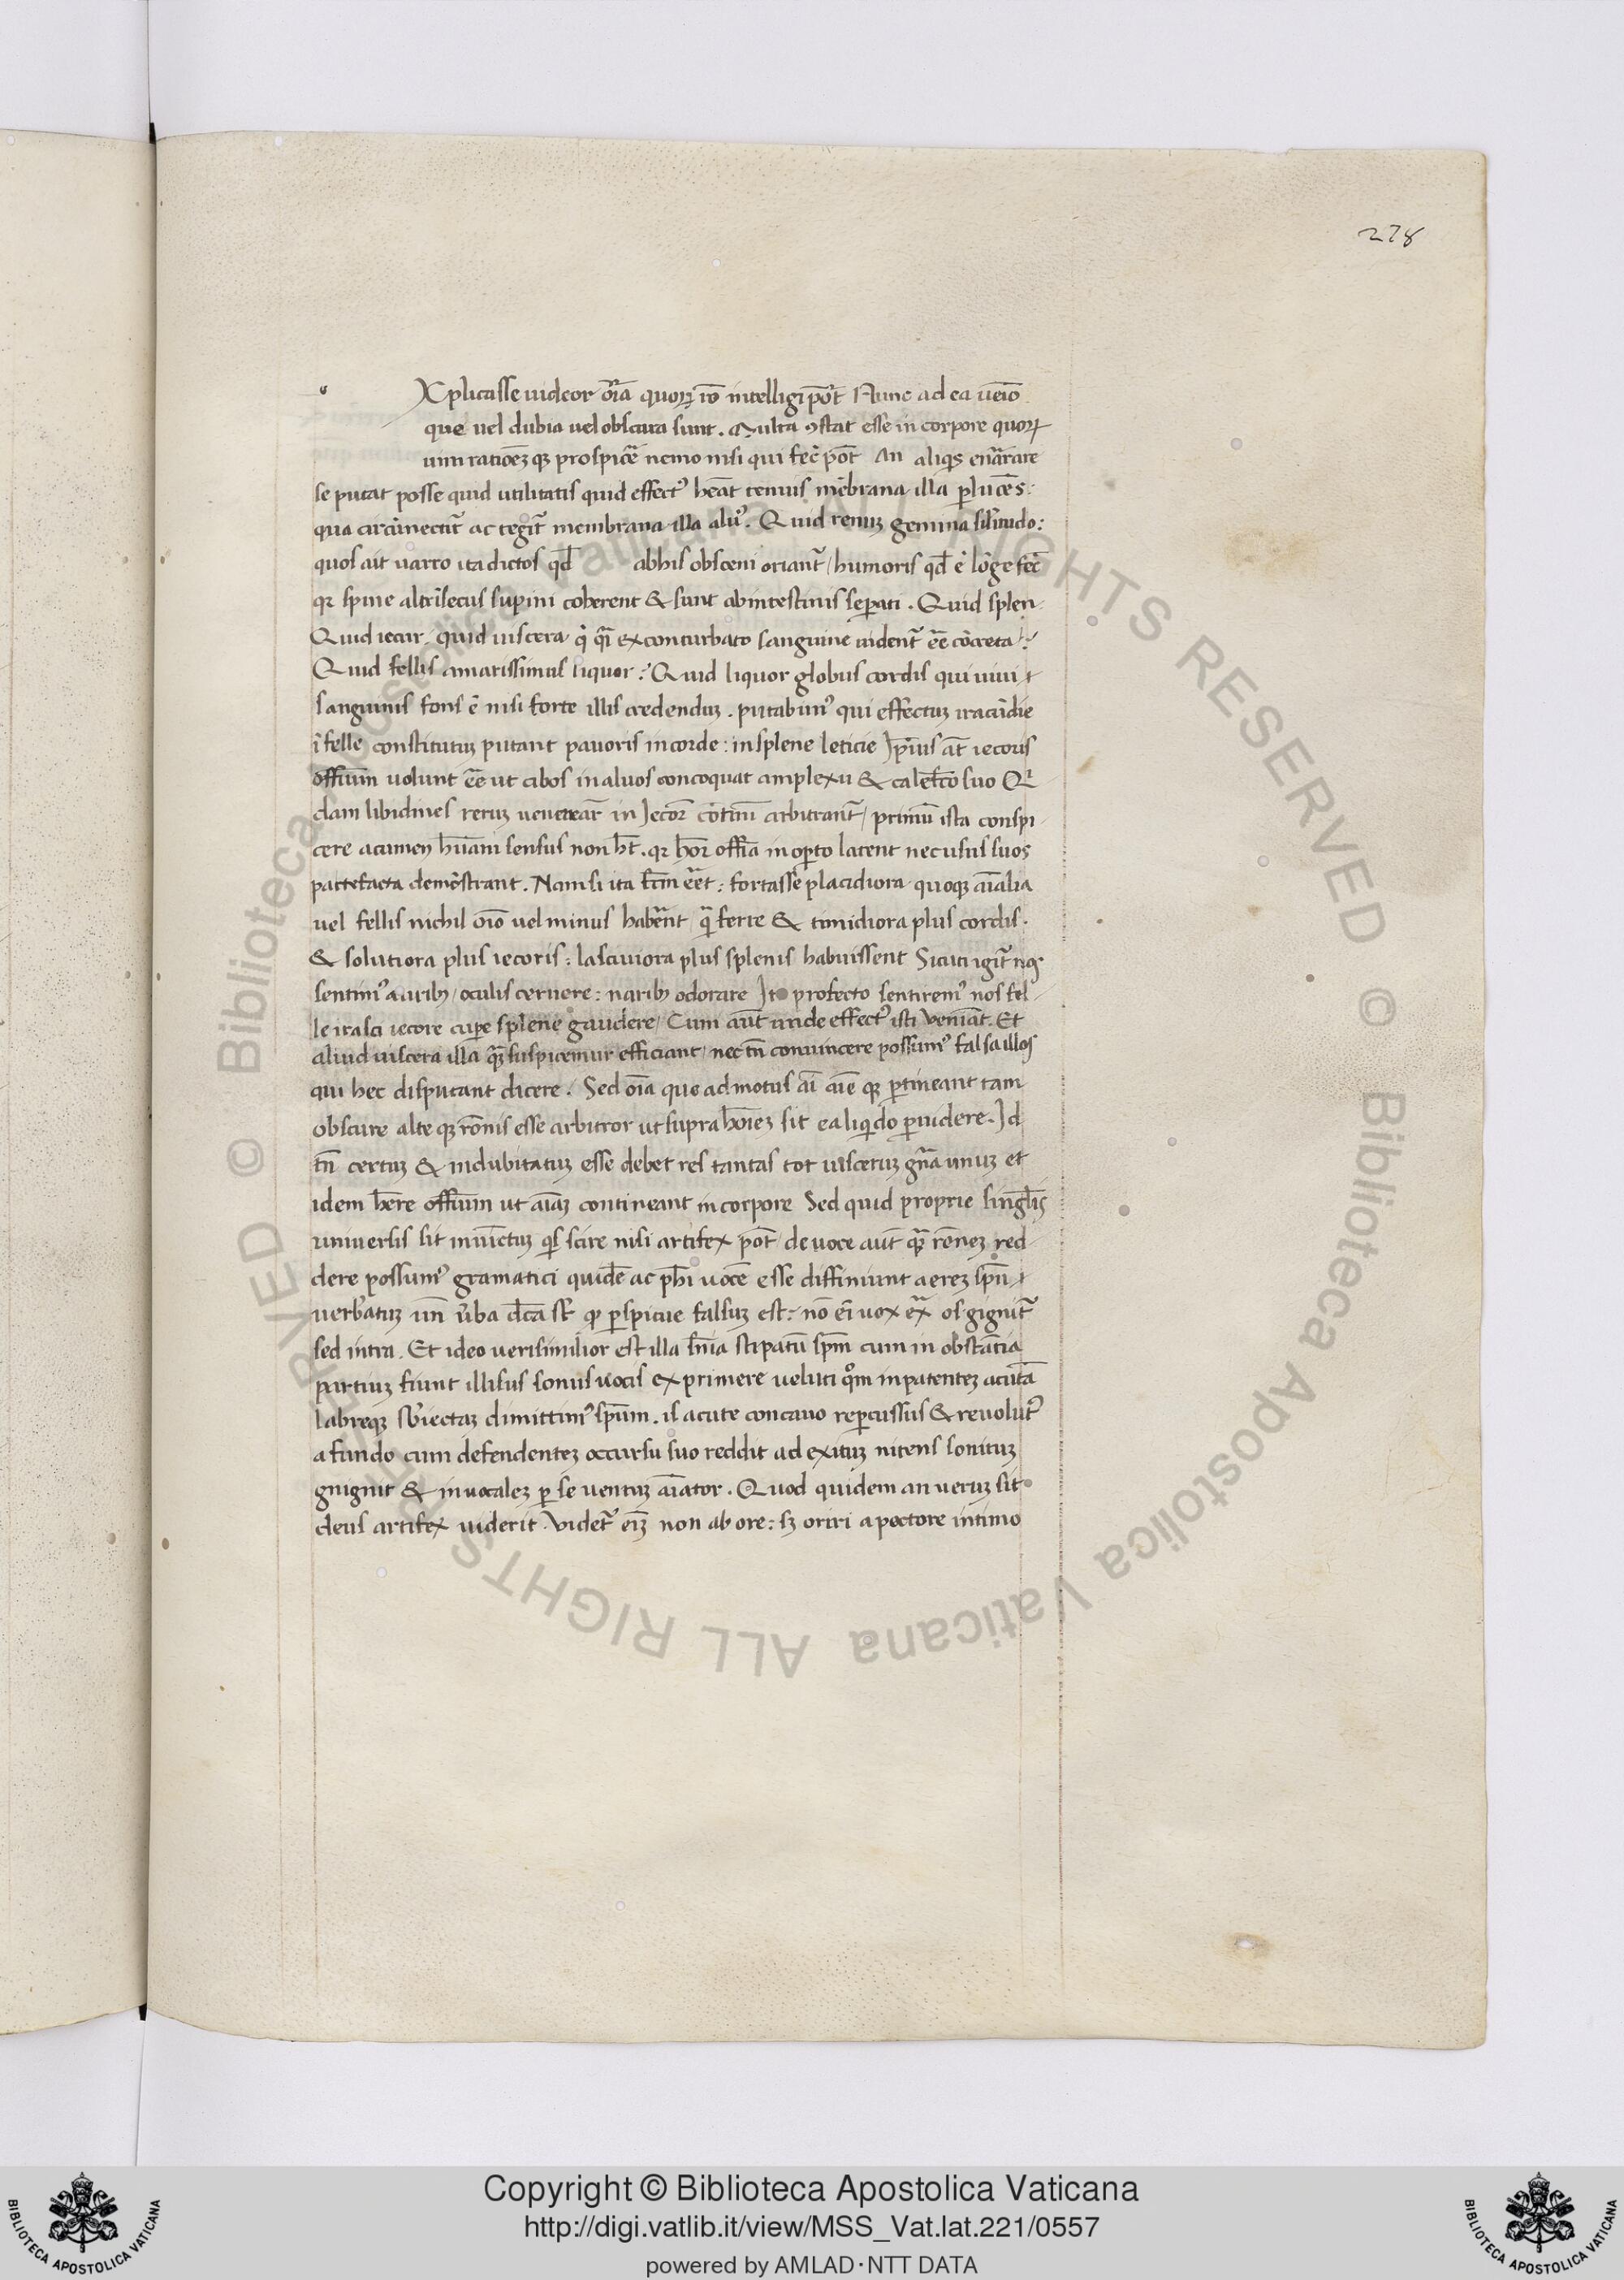 278
e Xplicasse uideor oĩa quoꝝ ro intelligi pōt Nunc ad ea uenio
que uel dubia uel obscura sunt. Multa ꝯstat esse in corpore quoꝝ
uim rationeꝫ qꝫ prospicẽ nemo nisi qui fecit pōt An aliqͥs enarrare
se putat posse quid utilitatis quid effectꝰ heãt tenuis mẽbrana illa ꝑlucẽs:
qua circũnectit᷑ ac tegit᷑ membrana illa aluꝰ. Quid renuꝫ gemina sil̃itudo:
quos ait uarro ita dictos qđ abhis obsceni oriant᷑ / humoris qđ ẽ lõge sec̃
qꝛ spine altrĩsecus supini coherent & sunt ab intestinis seꝑati. Quid splen
Quid iecur quid uiscera q̃ q̃i ex conturbato sanguine uident᷑ eẽ cõcreta?
Quid fellis amarissimus liquor? Quid liquor globus cordis qui uiui
sanguinis fons ẽ nisi forte illis credenduꝫ. putabimꝰ qui effectuꝫ iracũdie
ĩ felle constitutuꝫ putant pauoris in corde: in splene leticie Ip̃ius aũt iecoris
offium uolunt eẽ ut cibos in aluos concoquat amplexu & calefc̃o suo Qͥ
dam libidines reruꝫ uenerearꝝ in Iecor̃ cõtineri arbitrant᷑ / primũ ista conspi
cere acumen hũani sensus non hꝫ. qꝛ hoꝝ offia in oꝑto latent nec usus suos
pattefacta demõstrant. Nam si ita fc̃m eẽt: fortasse placidiora quoqꝫ aĩalia
uel fellis nichil oĩo uel minus habẽnt q̃ ferre & timidiora plus cordis.
& solutiora plus iecoris: lasciuiora plus splenis habuissent Sicuti igit᷑ nos
sentimꝰ auribꝫ / oculis cernere: naribꝫ odorare Ita profecto sentiremꝰ nos fel
le irasci iecore cuꝑe splene gaudere / Cum aũt unde effectꝰ isti ueniãt. Et
aliud uiscera illa quã suspicemur efficiant / nec tñ conuincere possumꝰ falsa illos
qui hec disputant dicere. Sed oĩa que ad motus aĩ aĩe qꝫ ꝑtineant tam
obscure alte qꝫ rõnis esse arbitror ut supra hoĩeꝫ sit ea liqido ꝑuidere. Id
tñ certuꝫ & indubitatuꝫ esse debet res tantas tot uisceruꝫ gñra unuꝫ et
idem hẽre offium ut aĩaꝫ contineant in corpore Sed quid proprie singl̃is
uniuersis sit iniũctuꝫ qͥs scire nisi artifex pōt / de uoce aũt quã rõneꝫ red
dere possumꝰ gramatici quidẽ ac phĩ uocẽ esse diffiniunt aereꝫ spũ
uerberatuꝫ un̄ u̇ba dc̃a st̃ qꝫ ꝑspicue falsuꝫ est: nõ eĩ uox ex̃ os gignit᷑
sed intra. Et ideo uerisimilior est illa sñia stipatũ spm̃ cum in obstãtia
partiuꝫ fiunt illisus sonus uocis exprimere ueluti qͦm in patenteꝫ acutã
labreqꝫ sb̃iectaꝫ dimittimꝰ spũm. is acute concauo reꝑcussus & reuolutꝰ
a fundo cum defendenteꝫ occursu suo reddit ad exituꝫ nitens sonituꝫ
gnignit & in uocaleꝫ ꝑ se uentuꝫ aĩator. Quod quidem an ueruꝫ sit
deus artifex uiderit. Videt᷑ eĩꝫ non ab ore: sꝫ oriri a pectore intimo
Copyright © Biblioteca Apostolica Vaticana
http://digi.vatlib.it/view/MSS_Vat.lat.221/0557
powered by AMLAD·NTT DATA